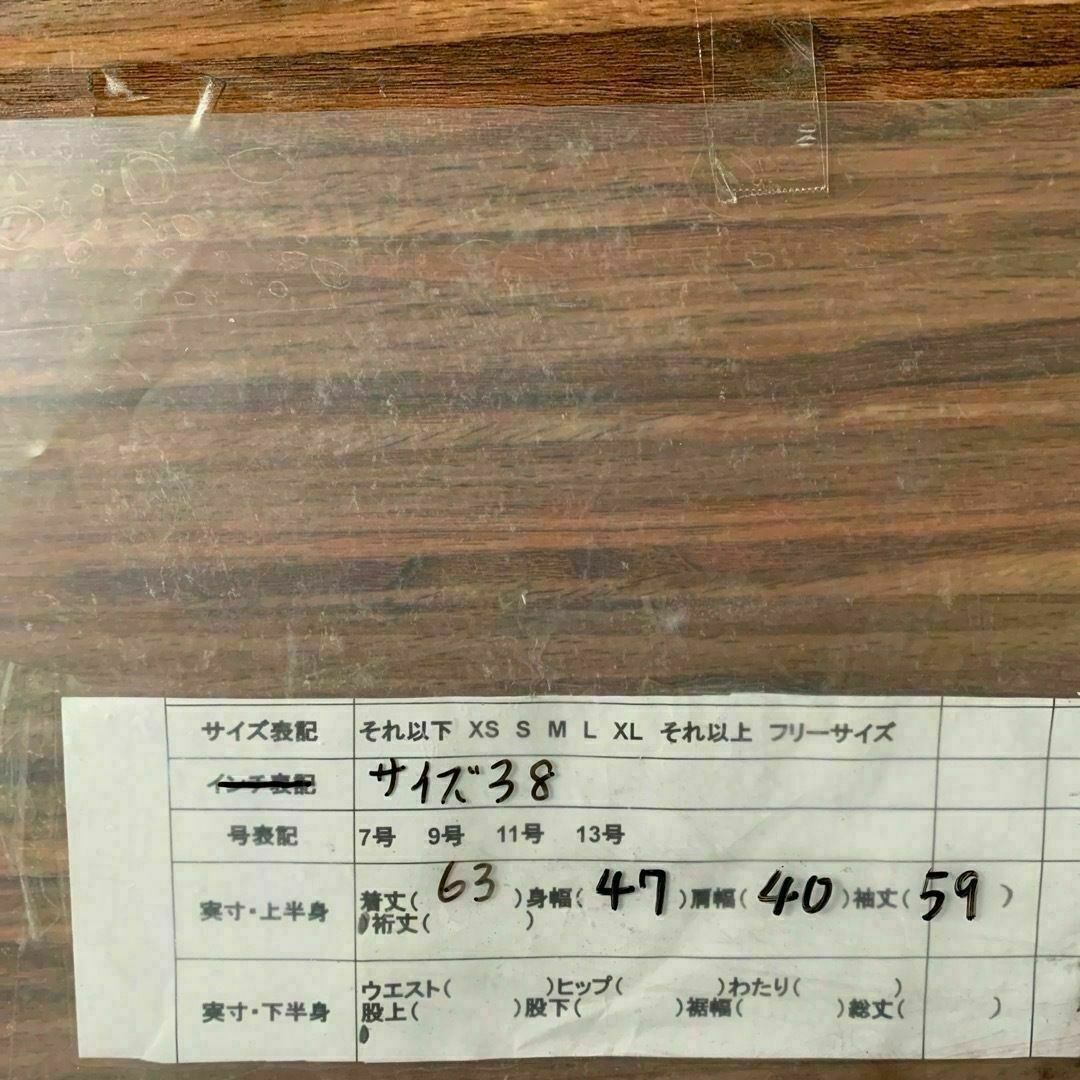 サイズ表記 それ以下 XS S M L XL それ以上 フリーサイズ
インチ表記 サイズ38
号表記 7号 9号 11号 13号
実寸・上半身 着丈( 63 )身幅( 47 )肩幅( 40 )袖丈( 59 )
裄丈( )
実寸・下半身 ウエスト( )ヒップ( )わたり( )
股上( )股下( )裾幅( )総丈( )